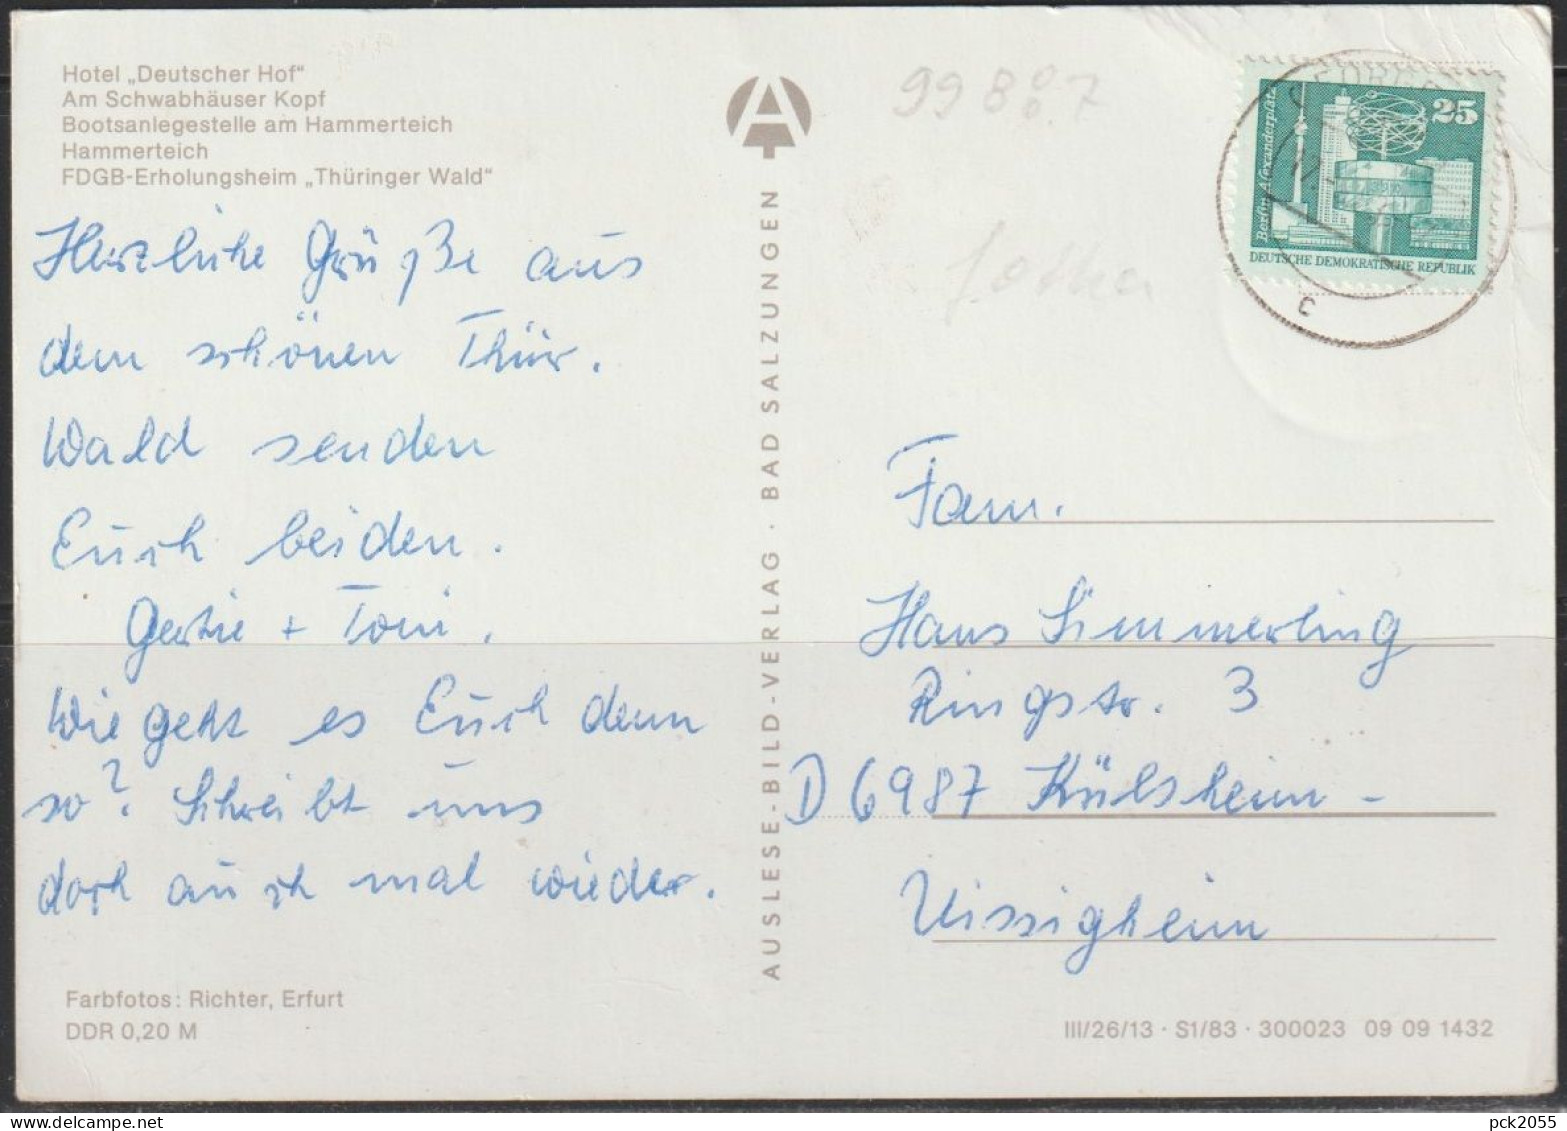 Hotel „Deutscher Hof“
Am Schwabhäuser Kopf
Bootsanlegestelle am Hammerteich
Hammerteich
FDGB-Erholungsheim „Thüringer Wald“
Herzliche Grüße aus
dem schönen Thür.
Wald senden
Euch beiden.
Gertie + Toni.
Wie geht es Euch denn
so? Schreibt uns
doch auch mal wieder.
Farbfotos: Richter, Erfurt
DDR 0,20 M
AUSLESE-BILD-VERLAG · BAD SALZUNGEN
99 8 7
Gotha
25
Berlin, Alexanderplatz
DEUTSCHE DEMOKRATISCHE REPUBLIK
c
Fam.
Hans Simmerling
Ringstr. 3
D 6987 Külsheim -
Uissigheim
III/26/13 · S1/83 · 300023 09 09 1432
pck2055